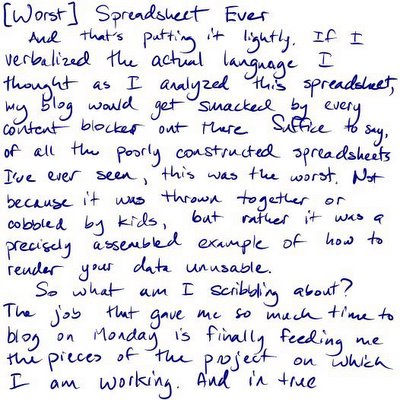 [Worst] Spreadsheet Ever
And that's putting it lightly. If I
verbalized the actual language I
thought as I analyzed this spreadsheet,
my blog would get smacked by every
content blocker out there. Suffice to say,
of all the poorly constructed spreadsheets
I've ever seen, this was the worst. Not
because it was thrown together or
cobbled by kids, but rather it was a
precisely assembled example of how to
render your data unusable.
So what am I scribbling about?
The job that gave me so much time to
blog on Monday is finally feeding me
the pieces of the project on which
I am working. And in true